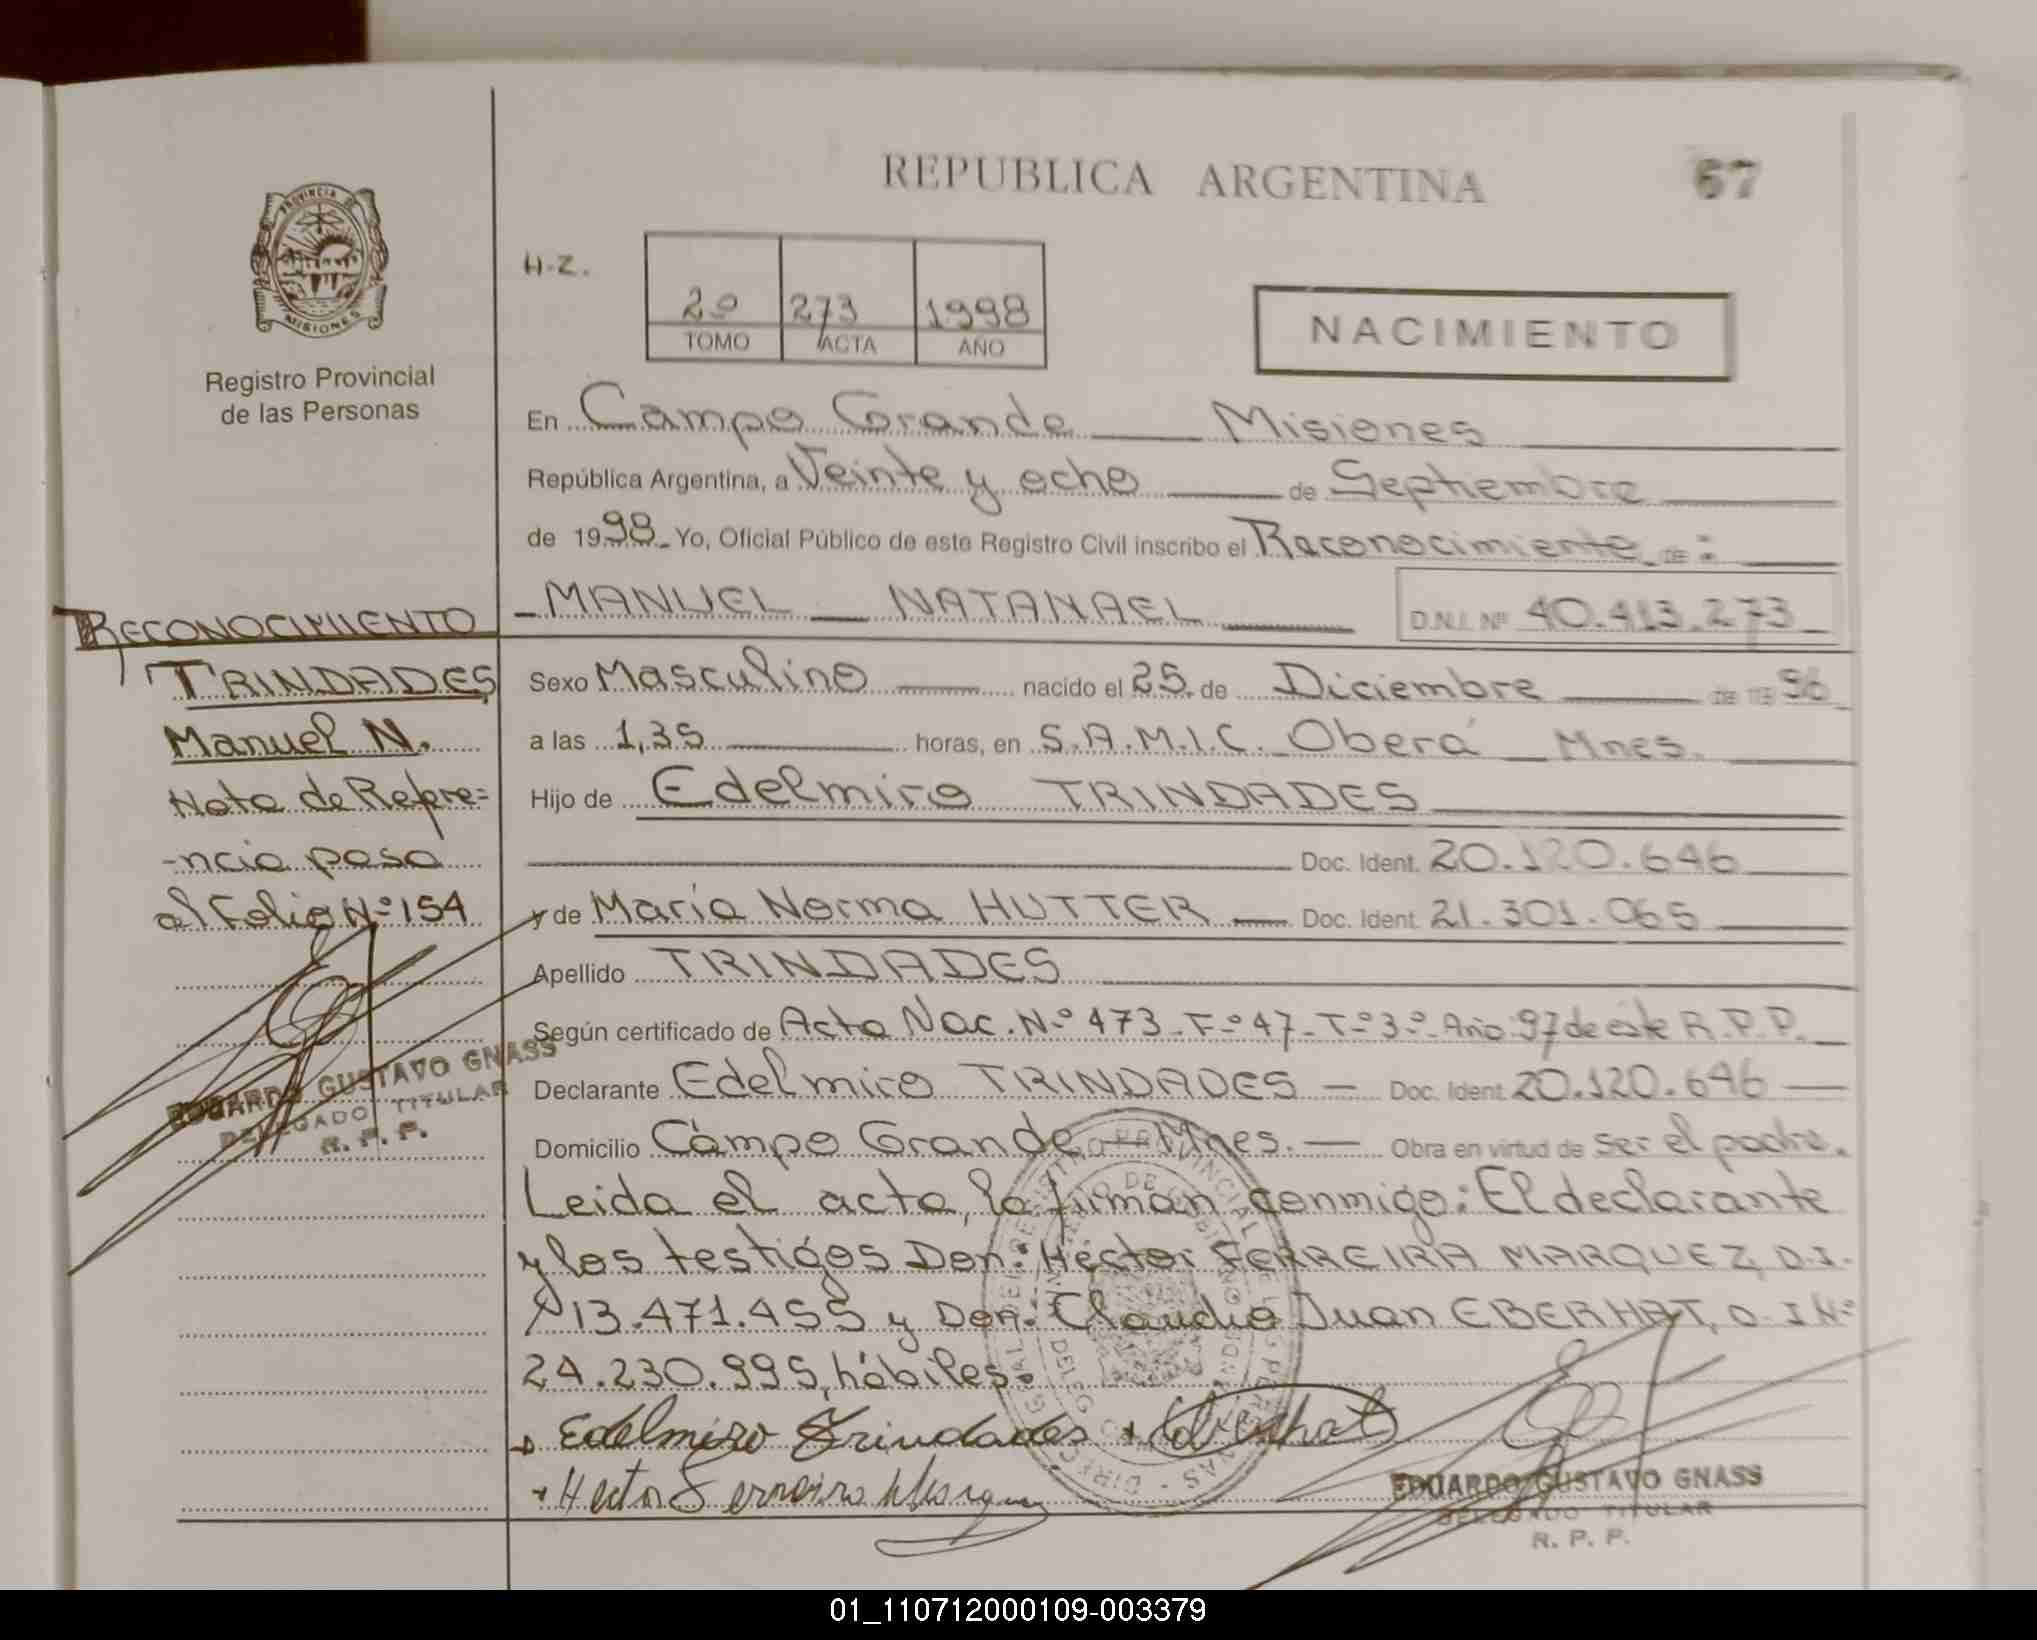 REPUBLICA ARGENTINA
67
PROVINCIA DE
MISIONES
Registro Provincial
de las Personas
H-Z.
2º 273 1998
TOMO ACTA AÑO
NACIMIENTO
En Campo Grande Misiones
República Argentina, a Veinte y ocho de Septiembre
de 1998 Yo, Oficial Público de este Registro Civil inscribo el Reconocimiento de :
MANUEL NATANAEL D.N.I. Nº 40.413.273
Sexo Masculino nacido el 25 de Diciembre de 1996
a las 1,35 horas, en S.A.M.I.C. Oberá Mnes.
Hijo de Edelmiro TRINDADES
Doc. Ident. 20.120.646
y de María Norma HUTTER Doc. Ident. 21.301.065
Apellido TRINDADES
Según certificado de Acta Nac. Nº 473 - Fº 47 - Tº 3º - Año 97 de este R.P.P.
Declarante Edelmiro TRINDADES Doc. Ident. 20.120.646
Domicilio Campo Grande - Mnes. Obra en virtud de ser el padre.
Leida el acta, la firman conmigo: El declarante
y los testigos Don: Hector FERREIRA MARQUEZ, D.I.
Nº 13.471.455 y Don: Claudio Juan EBERHAT, D.I Nº
24.230.995, hábiles.
Edelmiro Trindades
Hector Ferreira Marquez
EDUARDO GUSTAVO GNASS
DELEGADO TITULAR
R. P. P.
RECONOCIMIENTO
TRINDADES,
Manuel N.
Nota de Refere=
-ncia pasa
al Folio Nº 154
EDUARDO GUSTAVO GNASS
DELEGADO TITULAR
R. P. P.
01_110712000109-003379